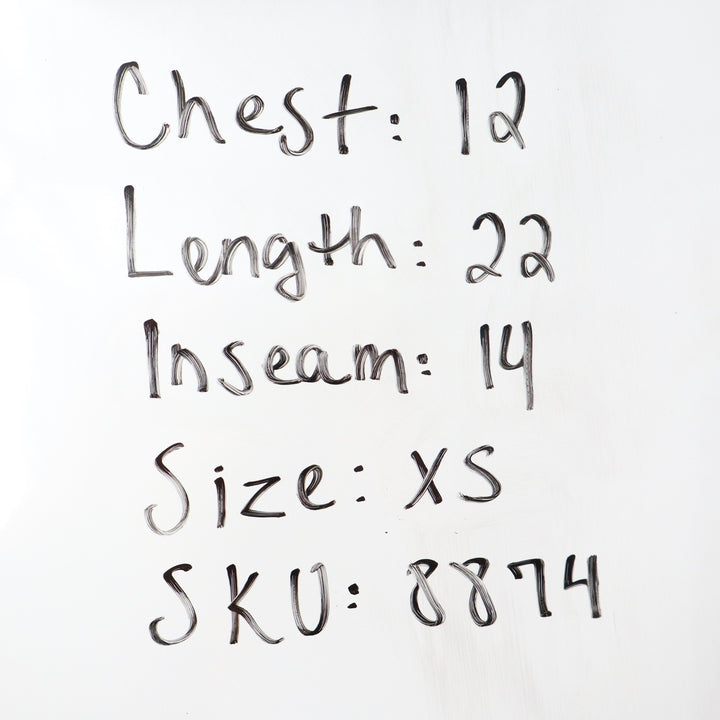 Chest: 12
Length: 22
Inseam: 14
Size: XS
SKU: 8874